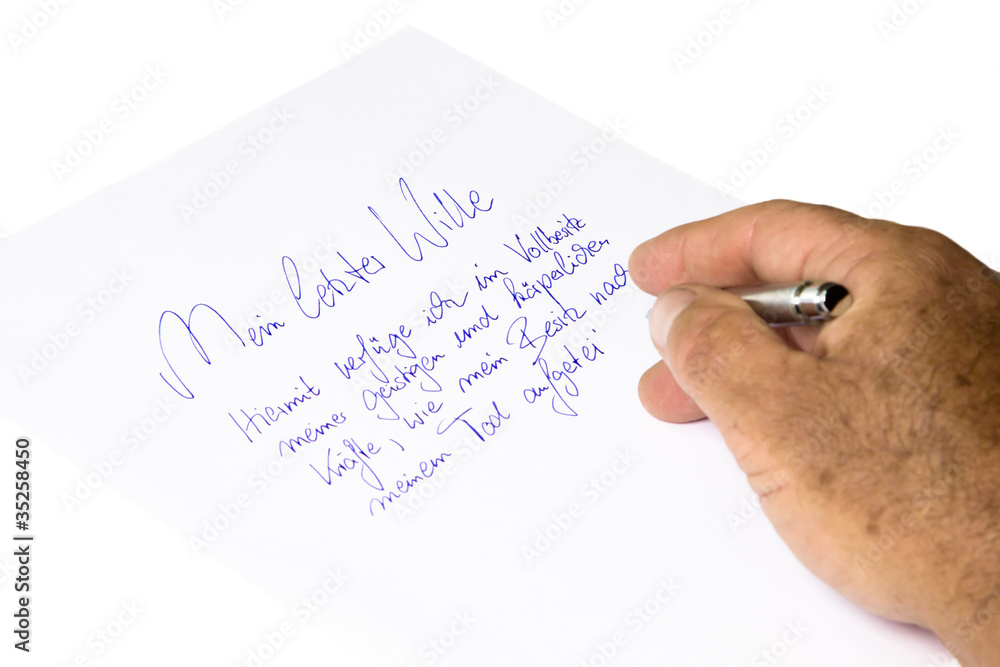 Mein letzter Wille
Hiermit verfüge ich im Vollbesitz
meiner geistigen und körperlichen
Kräfte, wie mein Besitz nach
meinem Tod aufgetei
Adobe Stock | #35258450